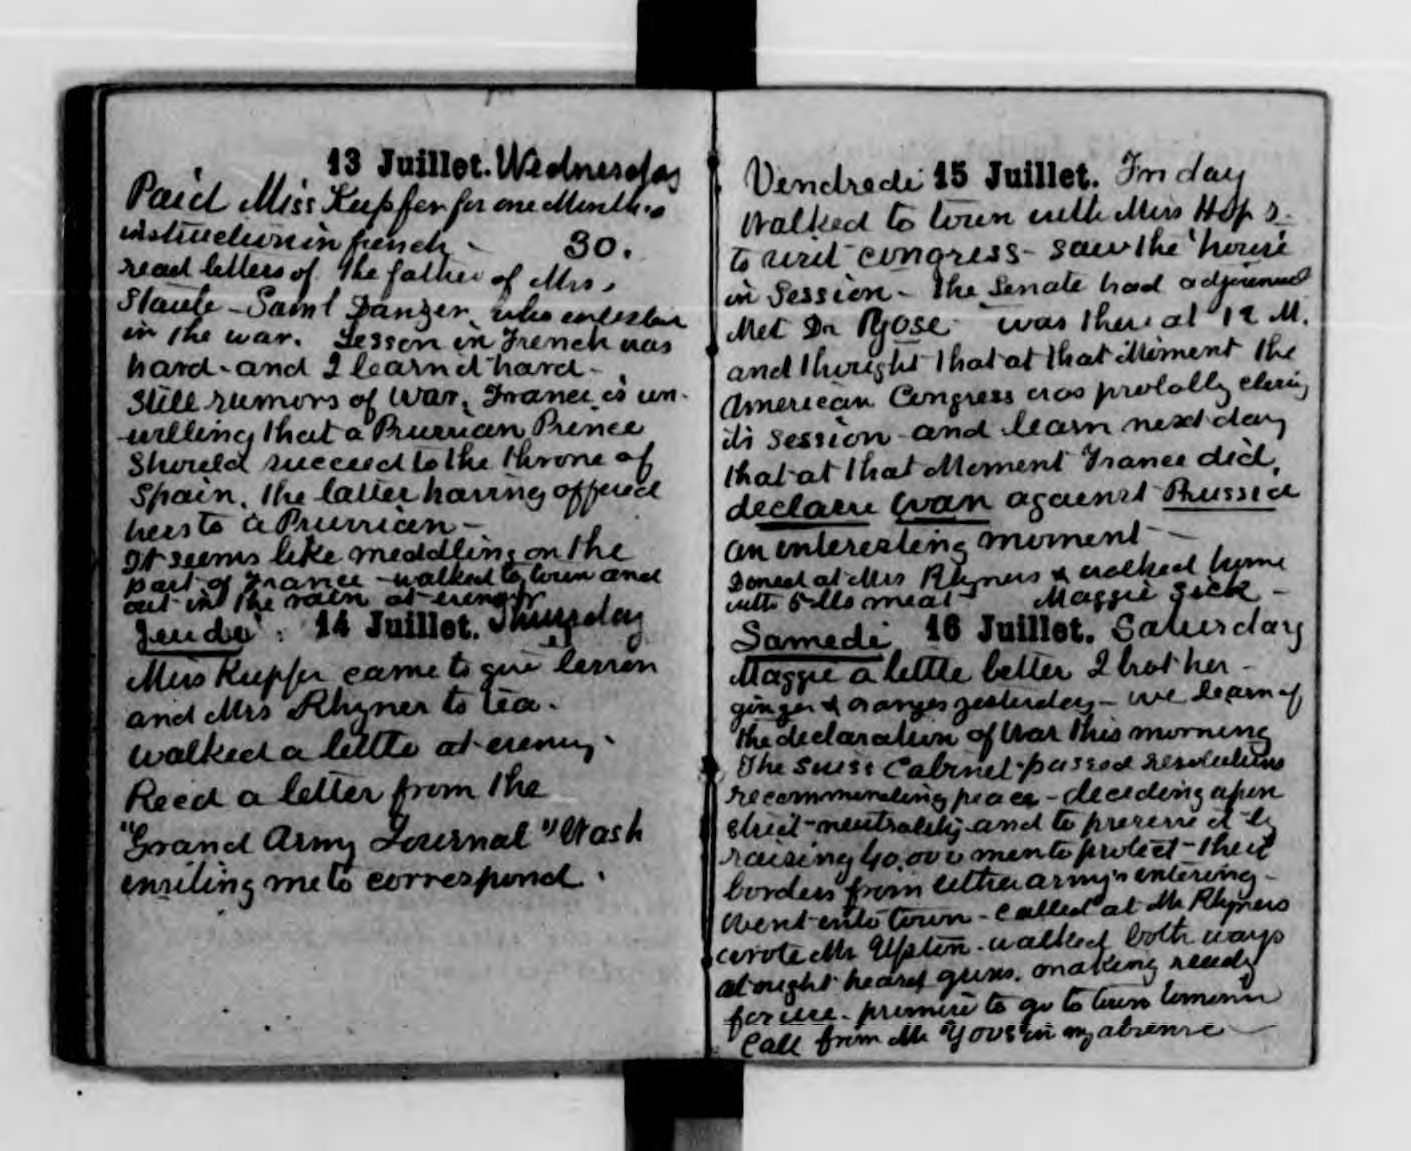 13 Juillet. Wednesday
Paid Miss Kupfer for one Months
instruction in french - 30.
read letters of the father of Mrs.
Staube - Saml Danzer, who enlisted
in the war. Lesson in French was
hard - and I learn'd hard -
Still rumors of War, France is un-
-willing that a Prussian Prince
should succeed to the throne of
Spain. The latter having offered
hers to a Prussian -
It seems like meddling on the
part of France - walked to town and
out in the rain at evening
Jeudi : 14 Juillet. Thursday
Miss Kupfer came to give lesson
and Mrs Rhyner to tea.
walked a little at evening.
Reced a letter from the
"Grand Army Journal" Wash
inviting me to correspond.
Vendredi 15 Juillet. Friday
Walked to town with Miss Hop
to visit congress - saw the house
in Session - The Senate had adjourned
Met Dr - was there at 12 M.
and thought that at that Moment the
American Congress was probably closing
its session - and learn next day
that at that Moment France did,
declare War against Prussia
an interesting moment -
Dined at Mrs Rhyners & walked home
with 5 lbs meat Maggie Sick -
Samedi 16 Juillet. Saturday
Maggie a little better I bot her -
ginger & oranges yesterday - we learn of
the declaration of War this morning
The Suiss Cabinet passed resolutions
recommending peace - deciding upon
strict neutrality and to preserve it by
raising 40,000 men to protect their
borders from either army's entering -
Went into town - Called at Mr Rhyners
wrote Mr Upton. walked both ways
at night heard guns. making ready
for use - promise to go to town tomorrow
Call from Mr in my absence